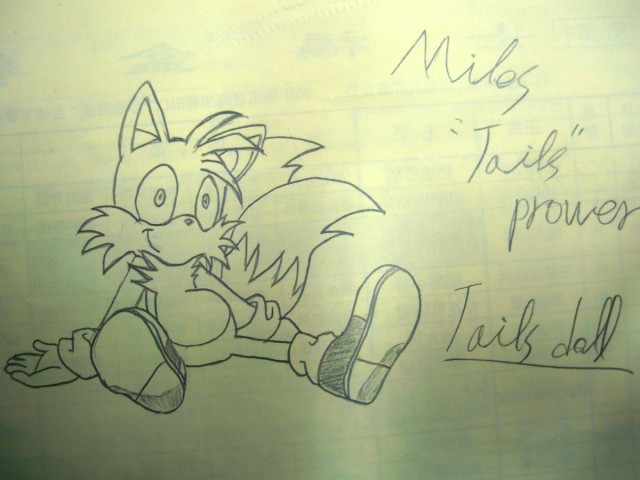 Miles
"Tails"
prower
Tails doll